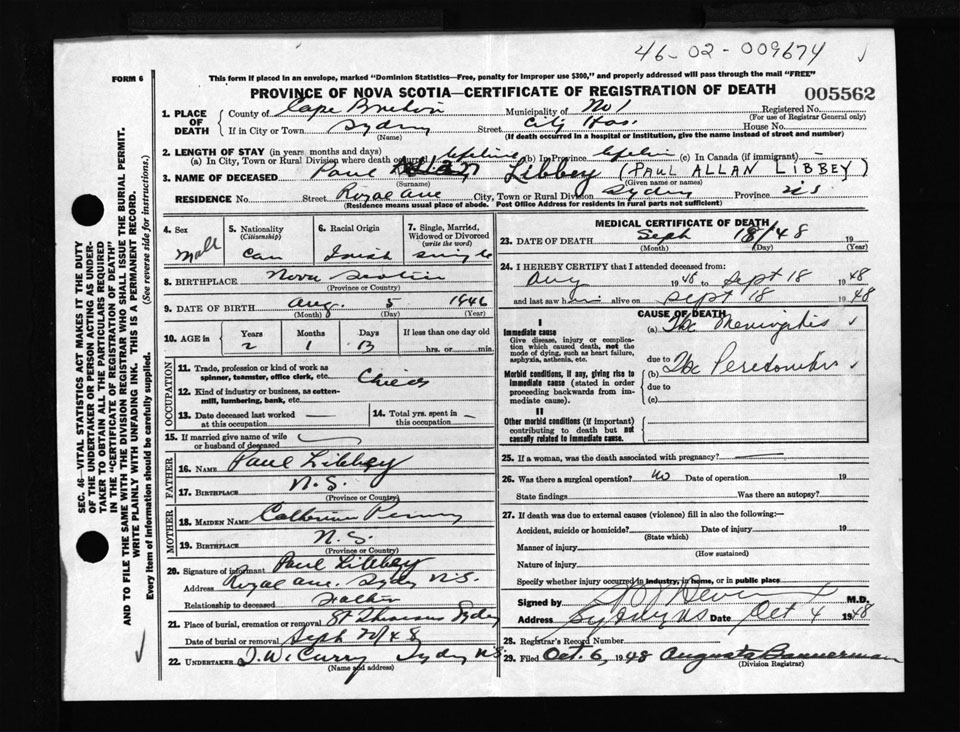 46-02-009674
FORM 6
This form if placed in an envelope, marked "Dominion Statistics—Free, penalty for improper use $300," and properly addressed will pass through the mail "FREE"
PROVINCE OF NOVA SCOTIA—CERTIFICATE OF REGISTRATION OF DEATH 005562
1. PLACE OF DEATH
County of Cape Breton Municipality of No 1 Registered No.
(For use of Registrar General only)
If in City or Town Sydney Street City Hos. House No.
(Name) (If death occurred in a hospital or institution, give the name instead of street and number)
2. LENGTH OF STAY (in years months and days)
(a) In City, Town or Rural Division where death occurred lifetime (b) In Province (c) In Canada (if immigrant)
3. NAME OF DECEASED Paul Libbey (PAUL ALLAN LIBBEY)
(Surname) (Given name or names)
RESIDENCE No. Street Royal ave City, Town or Rural Division Sydney Province N S
(Residence means usual place of abode. Post Office Address for residents in rural parts not sufficient)
4. Sex Male
5. Nationality (Citizenship) Can
6. Racial Origin Irish
7. Single, Married, Widowed or Divorced (write the word) single
8. BIRTHPLACE Nova Scotia
(Province or Country)
9. DATE OF BIRTH Aug. 5 1946
(Month) (Day) (Year)
10. AGE in Years Months Days If less than one day old
2 1 13 hrs. or min.
OCCUPATION
11. Trade, profession or kind of work as spinner, teamster, office clerk, etc. Child
12. Kind of industry or business, as cotten-mill, lumbering, bank, etc.
13. Date deceased last worked at this occupation
14. Total yrs. spent in this occupation
15. If married give name of wife or husband of deceased
FATHER
16. Name Paul Libbey
17. Birthplace N.S.
(Province or Country)
MOTHER
18. Maiden Name Catherine Penny
19. Birthplace N.S.
(Province or Country)
20. Signature of informant Paul Libbey
Address Royal ave. Sydney N.S.
Relationship to deceased Father
21. Place of burial, cremation or removal Sydney
Date of burial or removal Sept 20/48
22. Undertaker T.W. Curry Sydney N.S.
(Name and address)
MEDICAL CERTIFICATE OF DEATH
23. DATE OF DEATH Sept 18/48 19
(Month) (Day) (Year)
24. I HEREBY CERTIFY that I attended deceased from:
Aug 1948 to Sept 18 1948
and last saw him alive on Sept 18 1948
CAUSE OF DEATH
I
Immediate cause
Give disease, injury or complication which caused death, not the mode of dying, such as heart failure, asphyxia, asthenia, etc.
(a) Tbc Meningitis
due to
Morbid conditions, if any, giving rise to immediate cause (stated in order proceeding backwards from immediate).
(b) Tbc Peritonitis
due to
(c)
II
Other morbid conditions (if important) contributing to death but not causally related to immediate cause.
25. If a woman, was the death associated with pregnancy?
26. Was there a surgical operation? No Date of operation 19
State findings Was there an autopsy?
27. If death was due to external causes (violence) fill in also the following:—
Accident, suicide or homicide? Date of injury 19
(State which)
Manner of injury
(How sustained)
Nature of injury
Specify whether injury occurred in industry, in home, or in public place
Signed by M.D.
Address Sydney NS Date Oct 4 1948
28. Registrar's Record Number
29. Filed Oct. 6, 1948 Augusta Bannerman
(Division Registrar)
SEC. 46—VITAL STATISTICS ACT MAKES IT THE DUTY
OF THE UNDERTAKER OR PERSON ACTING AS UNDER-
TAKER TO OBTAIN ALL THE PARTICULARS REQUIRED
IN THE "CERTIFICATE OF REGISTRATION OF DEATH"
AND TO FILE THE SAME WITH THE DIVISION REGISTRAR WHO SHALL ISSUE THE BURIAL PERMIT.
WRITE PLAINLY WITH UNFADING INK. THIS IS A PERMANENT RECORD.
Every item of information should be carefully supplied. (See reverse side for instructions.)